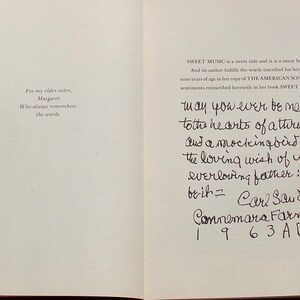 For my elder sister,
Margaret
Who always remembers
the words
SWEET MUSIC is a sweet title and it is a sweet
And its author fulfills the words inscribed for her
nine years of age in her copy of THE AMERICAN SON
sentiments reinscribed herewith in her book SWEET
May you ever be ne
to the hearts of a thru
and a mockingbird
the loving wish of
everloving father:
be it =
Carl San
Connemara Farm
1 9 6 3 A D